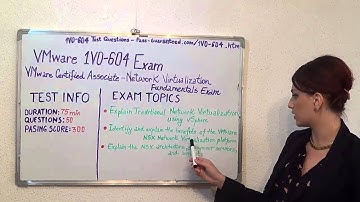 1V0-604 Test Questions - Pass-Guaranteed.com/1V0-604.htm
VMware 1V0-604 Exam
VMware Certified Associate - Network Virtualization
Fundamentals Exam
TEST INFO
DURATION: 75 min
QUESTIONS: 50
PASING SCORE: 300
EXAM TOPICS
• Explain Traditional Network Virtualization
using vSphere
• Identify and explain the benefits of the VMware
NSX Network Virtualization platform
• Explain the NSX architecture,
and